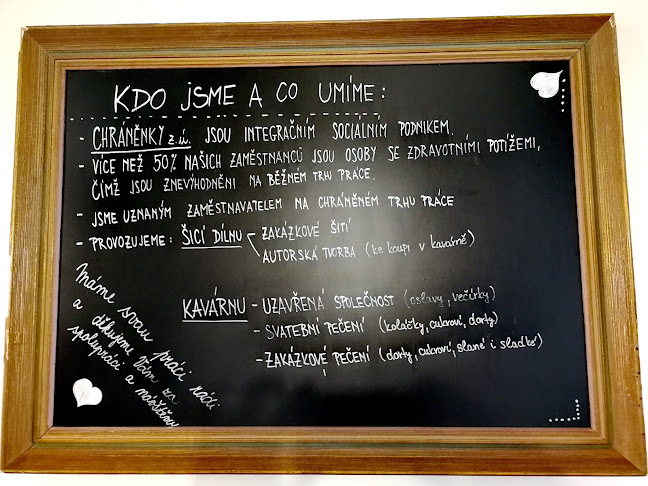 KDO JSME A CO UMÍME:
- CHRÁNĚNKY z.ú. JSOU INTEGRAČNÍM SOCIÁLNÍM PODNIKEM.
- VÍCE NEŽ 50% NAŠICH ZAMĚSTNANCŮ JSOU OSOBY SE ZDRAVOTNÍMI POTÍŽEMI,
ČÍMŽ JSOU ZNEVÝHODNĚNI NA BĚŽNÉM TRHU PRÁCE.
- JSME UZNANÝM ZAMĚSTNAVATELEM NA CHRÁNĚNÉM TRHU PRÁCE
- PROVOZUJEME: ŠICÍ DÍLNU - ZAKÁZKOVÉ ŠITÍ
AUTORSKÁ TVORBA (ke koupi v kavárně)
KAVÁRNU - UZAVŘENÁ SPOLEČNOST (oslavy, večírky)
- SVATEBNÍ PEČENÍ (koláčky, cukroví, dorty)
- ZAKÁZKOVÉ PEČENÍ (dorty, cukroví, slané i sladké)
Máme svou práci rádi
a děkujeme Vám za
spolupráci a návštěvu